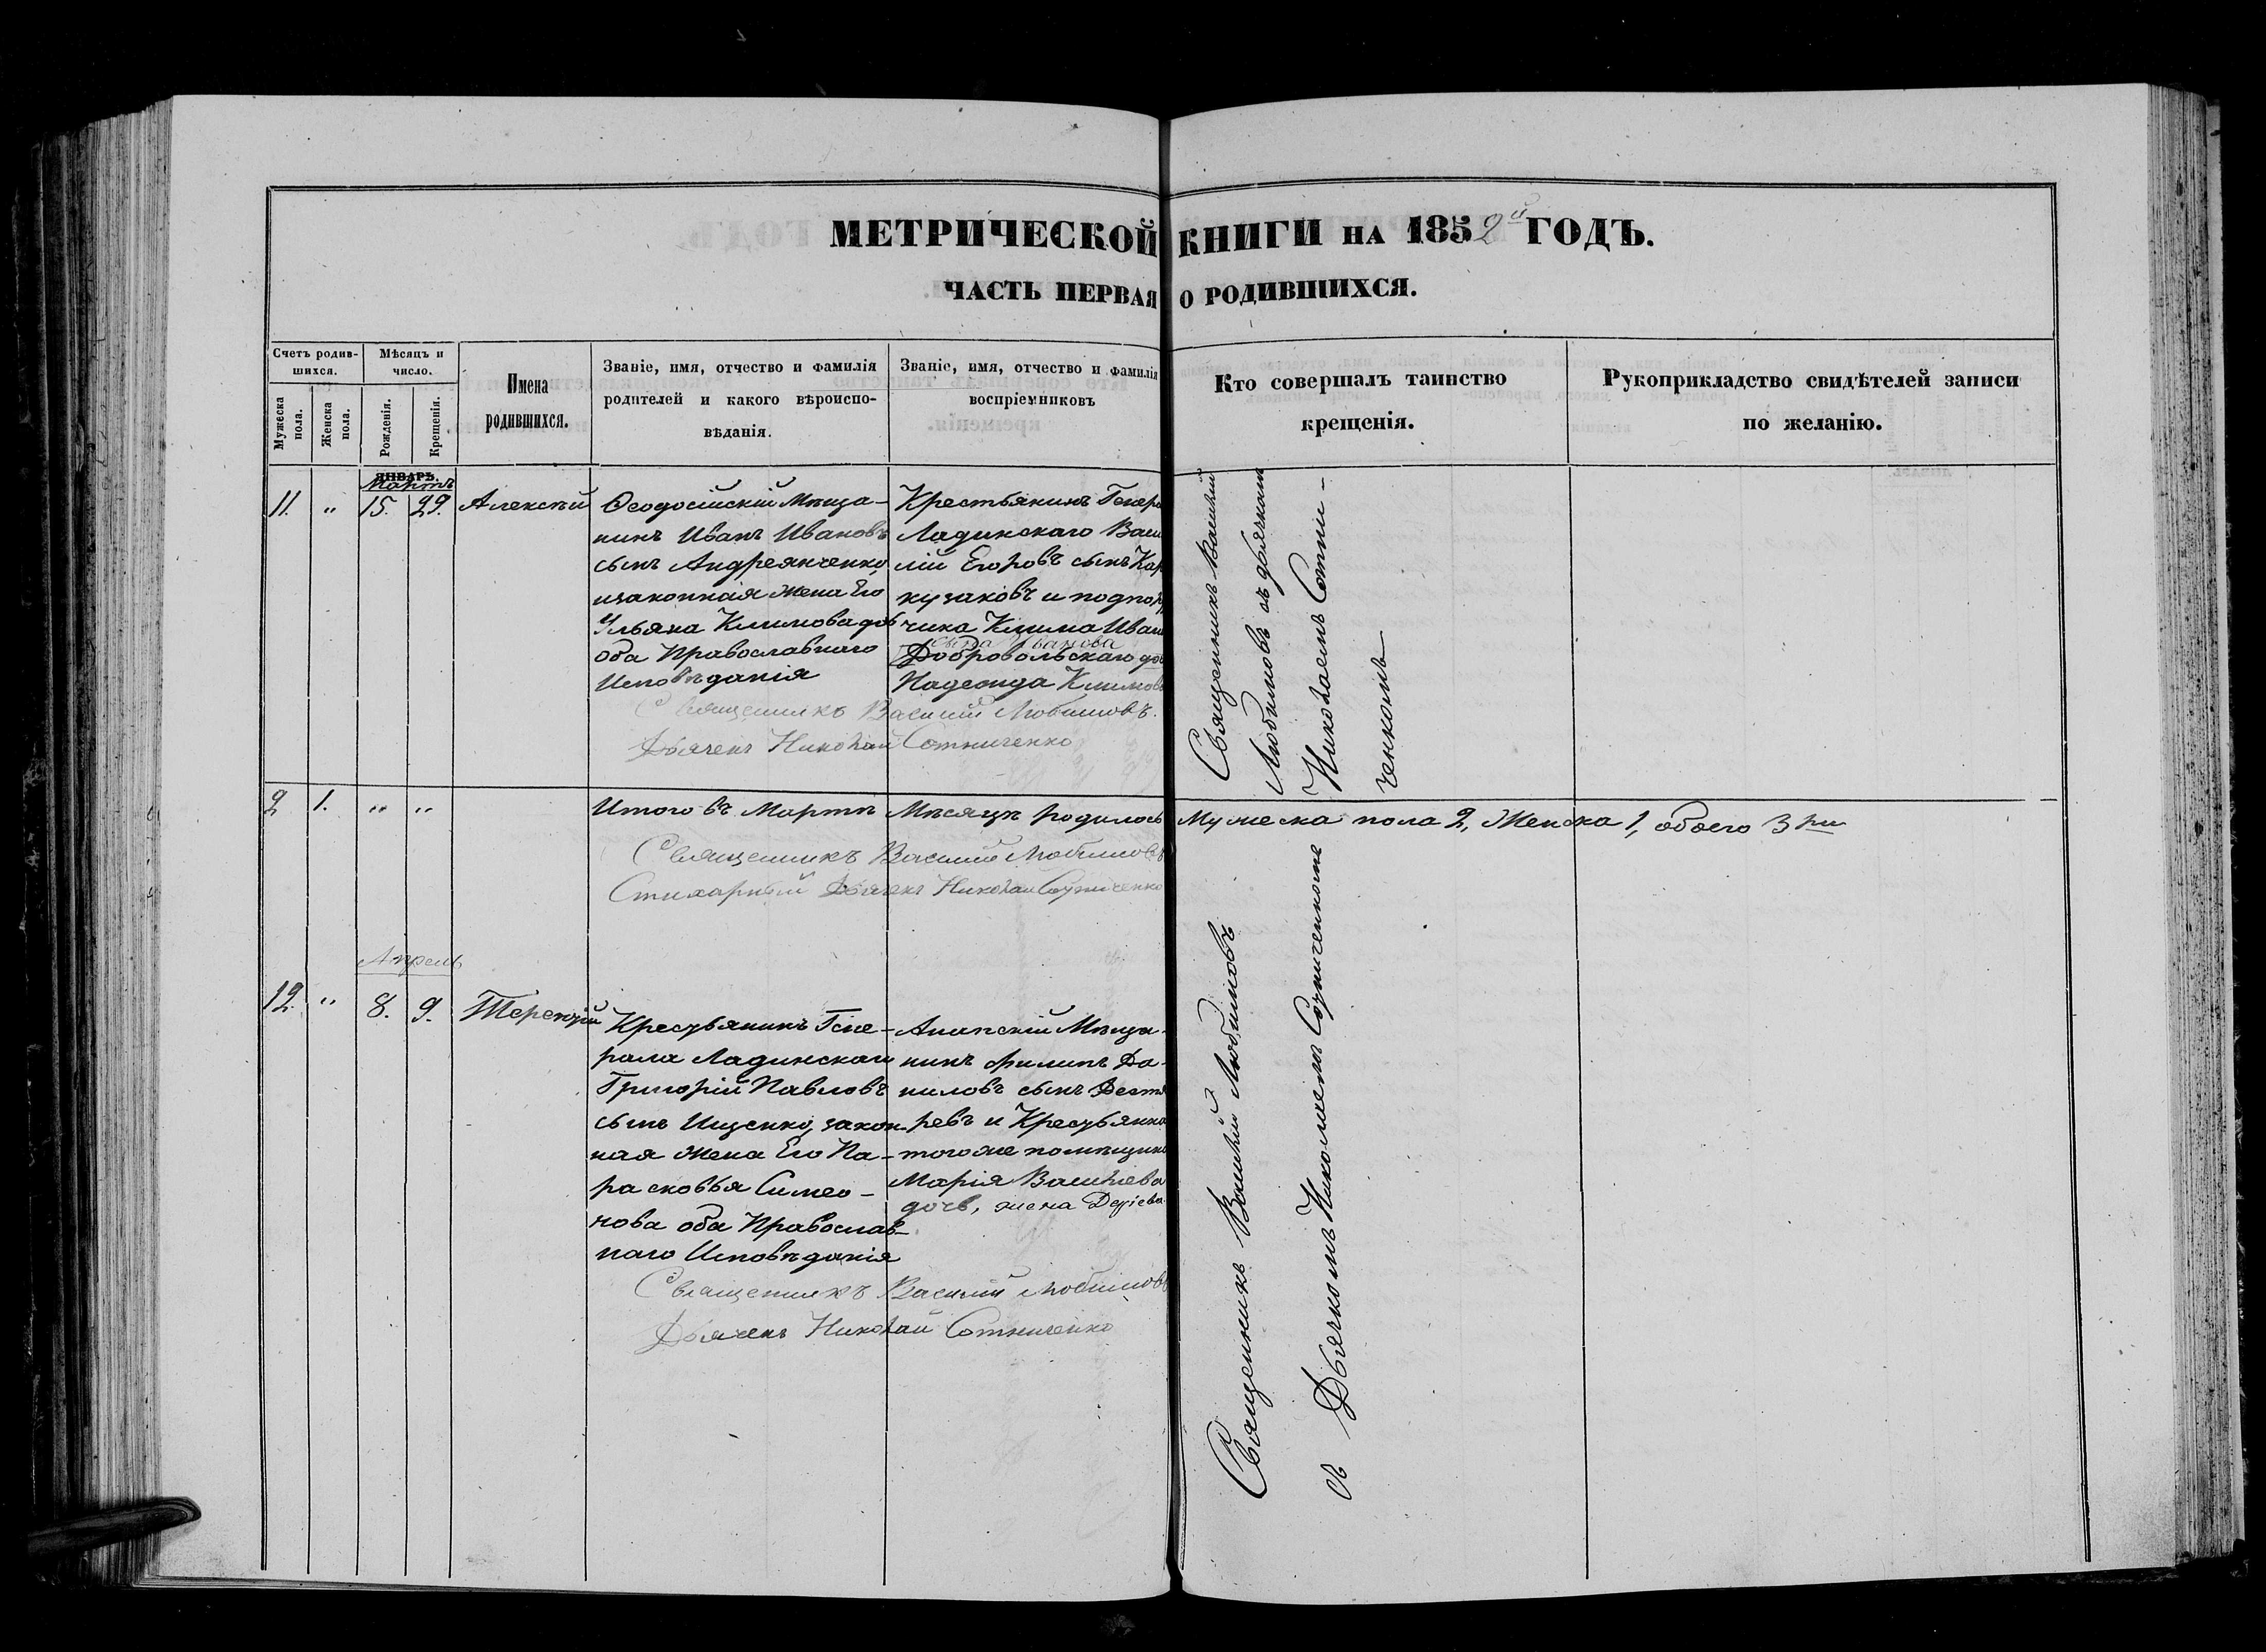 МЕТРИЧЕСКОЙ КНИГИ НА 1852й ГОДЪ.
ЧАСТЬ ПЕРВАЯ О РОДИВШИХСЯ.
Счетъ родив-
шихся.
Мужеска пола.
Женска пола.
Мѣсяцъ и
число.
Рожденія.
Крещенія.
Имена
родившихся.
Званіе, имя, отчество и фамилія
родителей и какого вѣроиспо-
вѣданія.
Званіе, имя, отчество и фамилія
воспріемниковъ
Кто совершалъ таинство
крещенія.
Рукоприкладство свидѣтелей записи
по желанію.
ЯНВАРЬ.
Мартъ
11. " 15. 29. Алексѣй
Ѳеодосійскій Мѣща-
нинъ Иванъ Ивановъ
сынъ Андреянченко,
изаконная жена Его
Ульяна Климова доч
оба Православнаго
Исповѣданія
Крестьянинъ Генера
Ладинскаго Васи
лій Егоровъ сынъ Кар
кузаковъ и подпору
чика Клима Иван
сына Иванова
Добровольскаго доч
Надежда Климов
Священникъ Василій Любимовъ.
Дьячекъ Николай Сотниченко
Священникъ Василій
Любимовъ съ дьячкомъ
Николаемъ Сотни-
ченкомъ
2 1. " " Итого въ Мартѣ Мѣсяцѣ родилось Мужеска пола 2, Женска 1, обоего 3ри
Священникъ Василій Любимовъ
Стихарный Дьячекъ Николай Сотниченко
Апрель
12. " 8. 9. Терентій
Крестьянинъ Гене-
рала Ладинскаго
Григорій Павловъ
сынъ Ищенко, закон-
ная жена Его Па-
расковья Симео-
нова оба Православ-
наго Исповѣданія
Анапскій Мѣща-
нинъ Филипъ Да-
ниловъ сынъ Дегтя
ревъ и Крестьянка
тогоже помѣщика
Марія Васильева
дочь, жена
Священникъ Василій Любимовъ
Дьячекъ Николай Сотниченко
Священникъ Василій Любимовъ
съ Дьячкомъ Николаемъ Сотниченкомъ